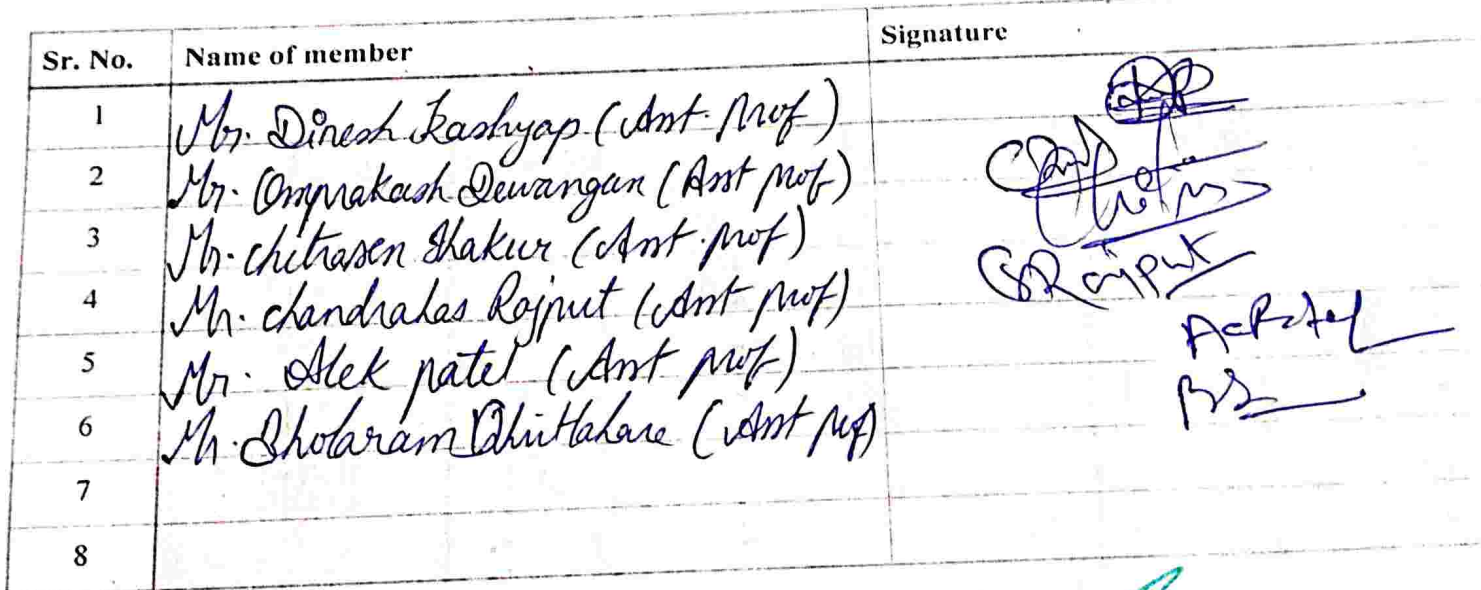 Sr. No. Name of member Signature
1 Mr. Dinesh Kashyap (Asst. Prof)
2 Mr. Omprakash Dewangan (Asst prof)
3 Mr. chitrasen Thakur (Asst. prof)
4 Mr. chandrahas Rajput (Asst prof) CSRajput
5 Mr. Alek patel (Asst prof) APatel
6 Mr. Bholaram Dhritlahare (Asst prof)
7
8